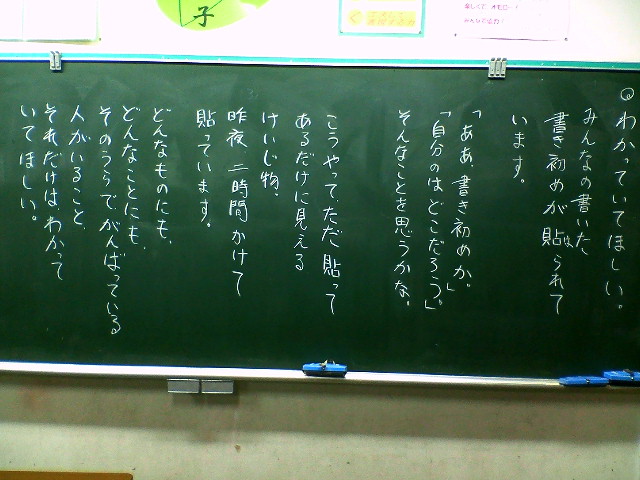 ◎わかっていてほしい。
みんなの書いた
書き初めが貼られて
います。
「ああ、書き初めか。」
「自分のは、どこだろう。」
そんなことを思うかな。
こうやって、ただ、貼って
あるだけに見える
けいじ物。
昨夜、二時間かけて
貼っています。
どんなものにも、
どんなことにも、
そのうらでがんばっている
人がいること、
それだけは、わかって
いてほしい。
子